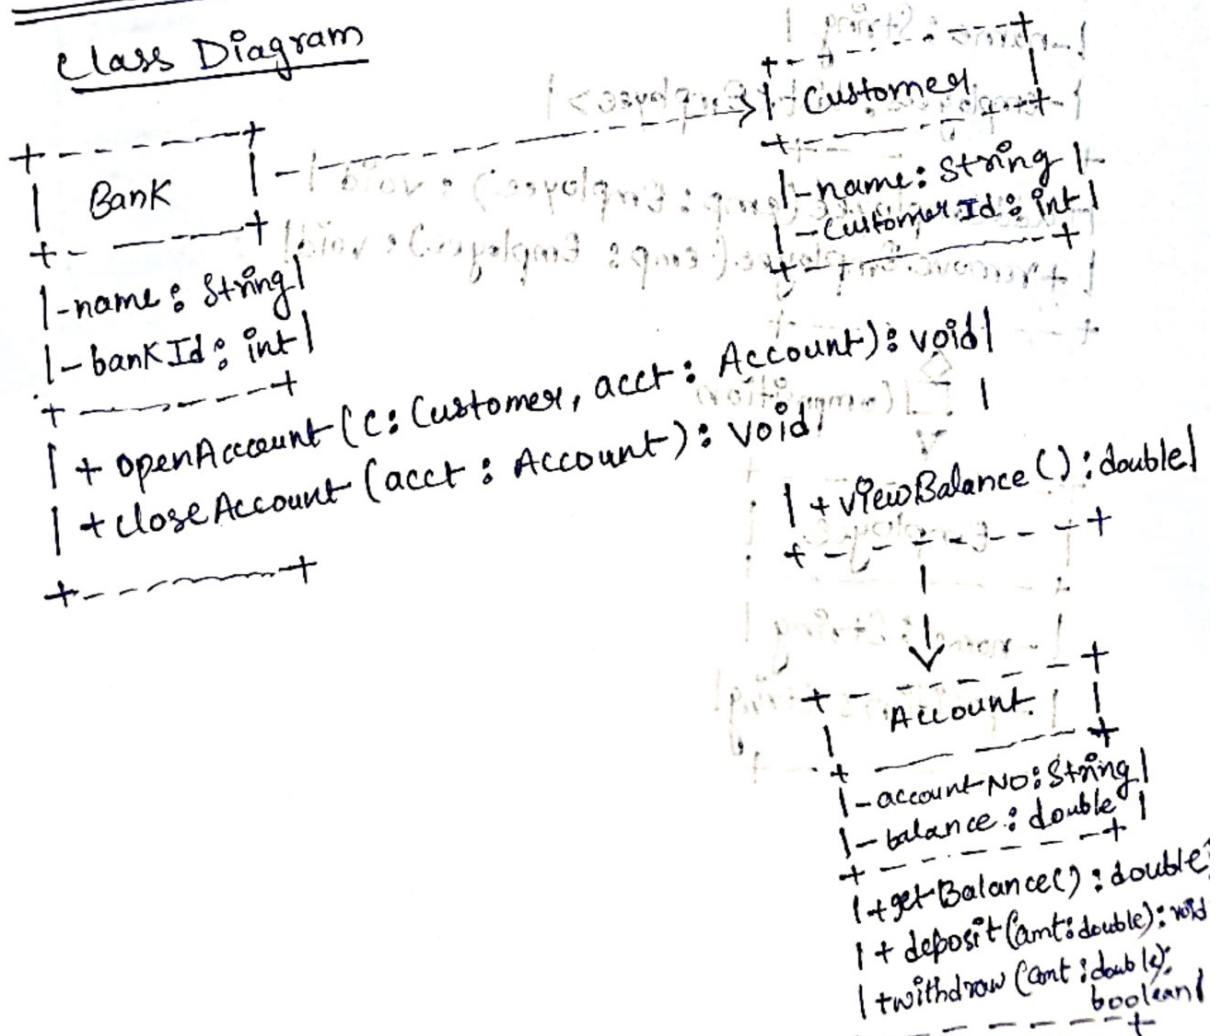 Class Diagram
+------+
| Bank |------->
+------+
|-name: String|
|-bankId: int|
+-------+
|+openAccount(c: Customer, acct: Account): void|
|+closeAccount(acct: Account): void|
+-------+
+-------+
| Customer |
+-------+
|-name: String|
|-CustomerId: int|
+-------+
|+viewBalance(): double|
+-------+
+-------+
| Account |
+-------+
|-accountNo: String|
|-balance: double|
+-------+
|+getBalance(): double|
|+deposit(amt: double): void
|+withdraw(amt: double):
boolean|
-------+